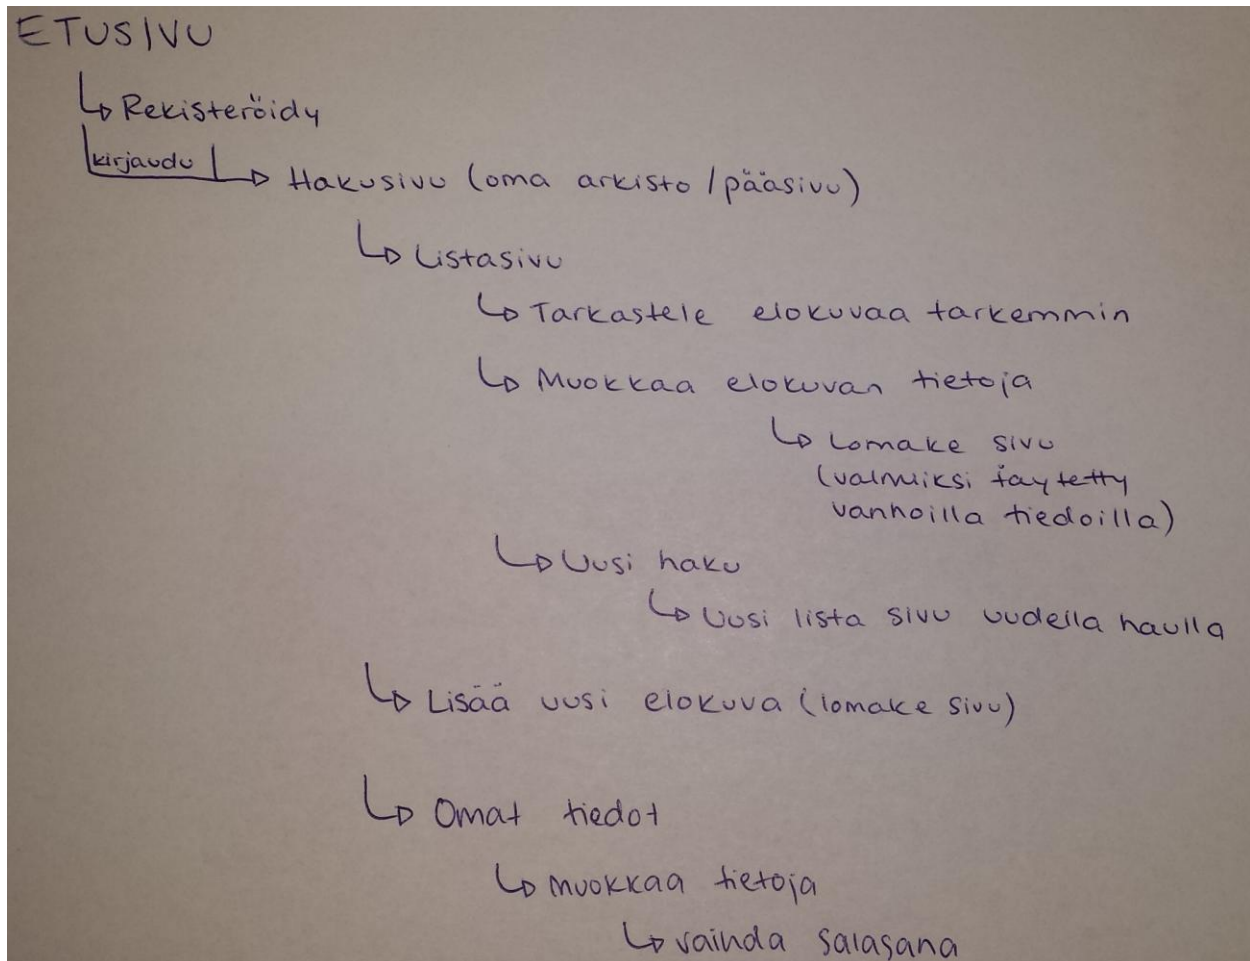 ETUSIVU
Rekisteröidy
kirjaudu
Hakusivu (oma arkisto / pääsivu)
Listasivu
Tarkastele elokuvaa tarkemmin
Muokkaa elokuvan tietoja
Lomake sivu
(valmiksi täytetty
vanhoilla tiedoilla)
Uusi haku
Uusi lista sivu uudella haulla
Lisää uusi elokuva (lomake sivu)
Omat tiedot
muokkaa tietoja
vainda salasana